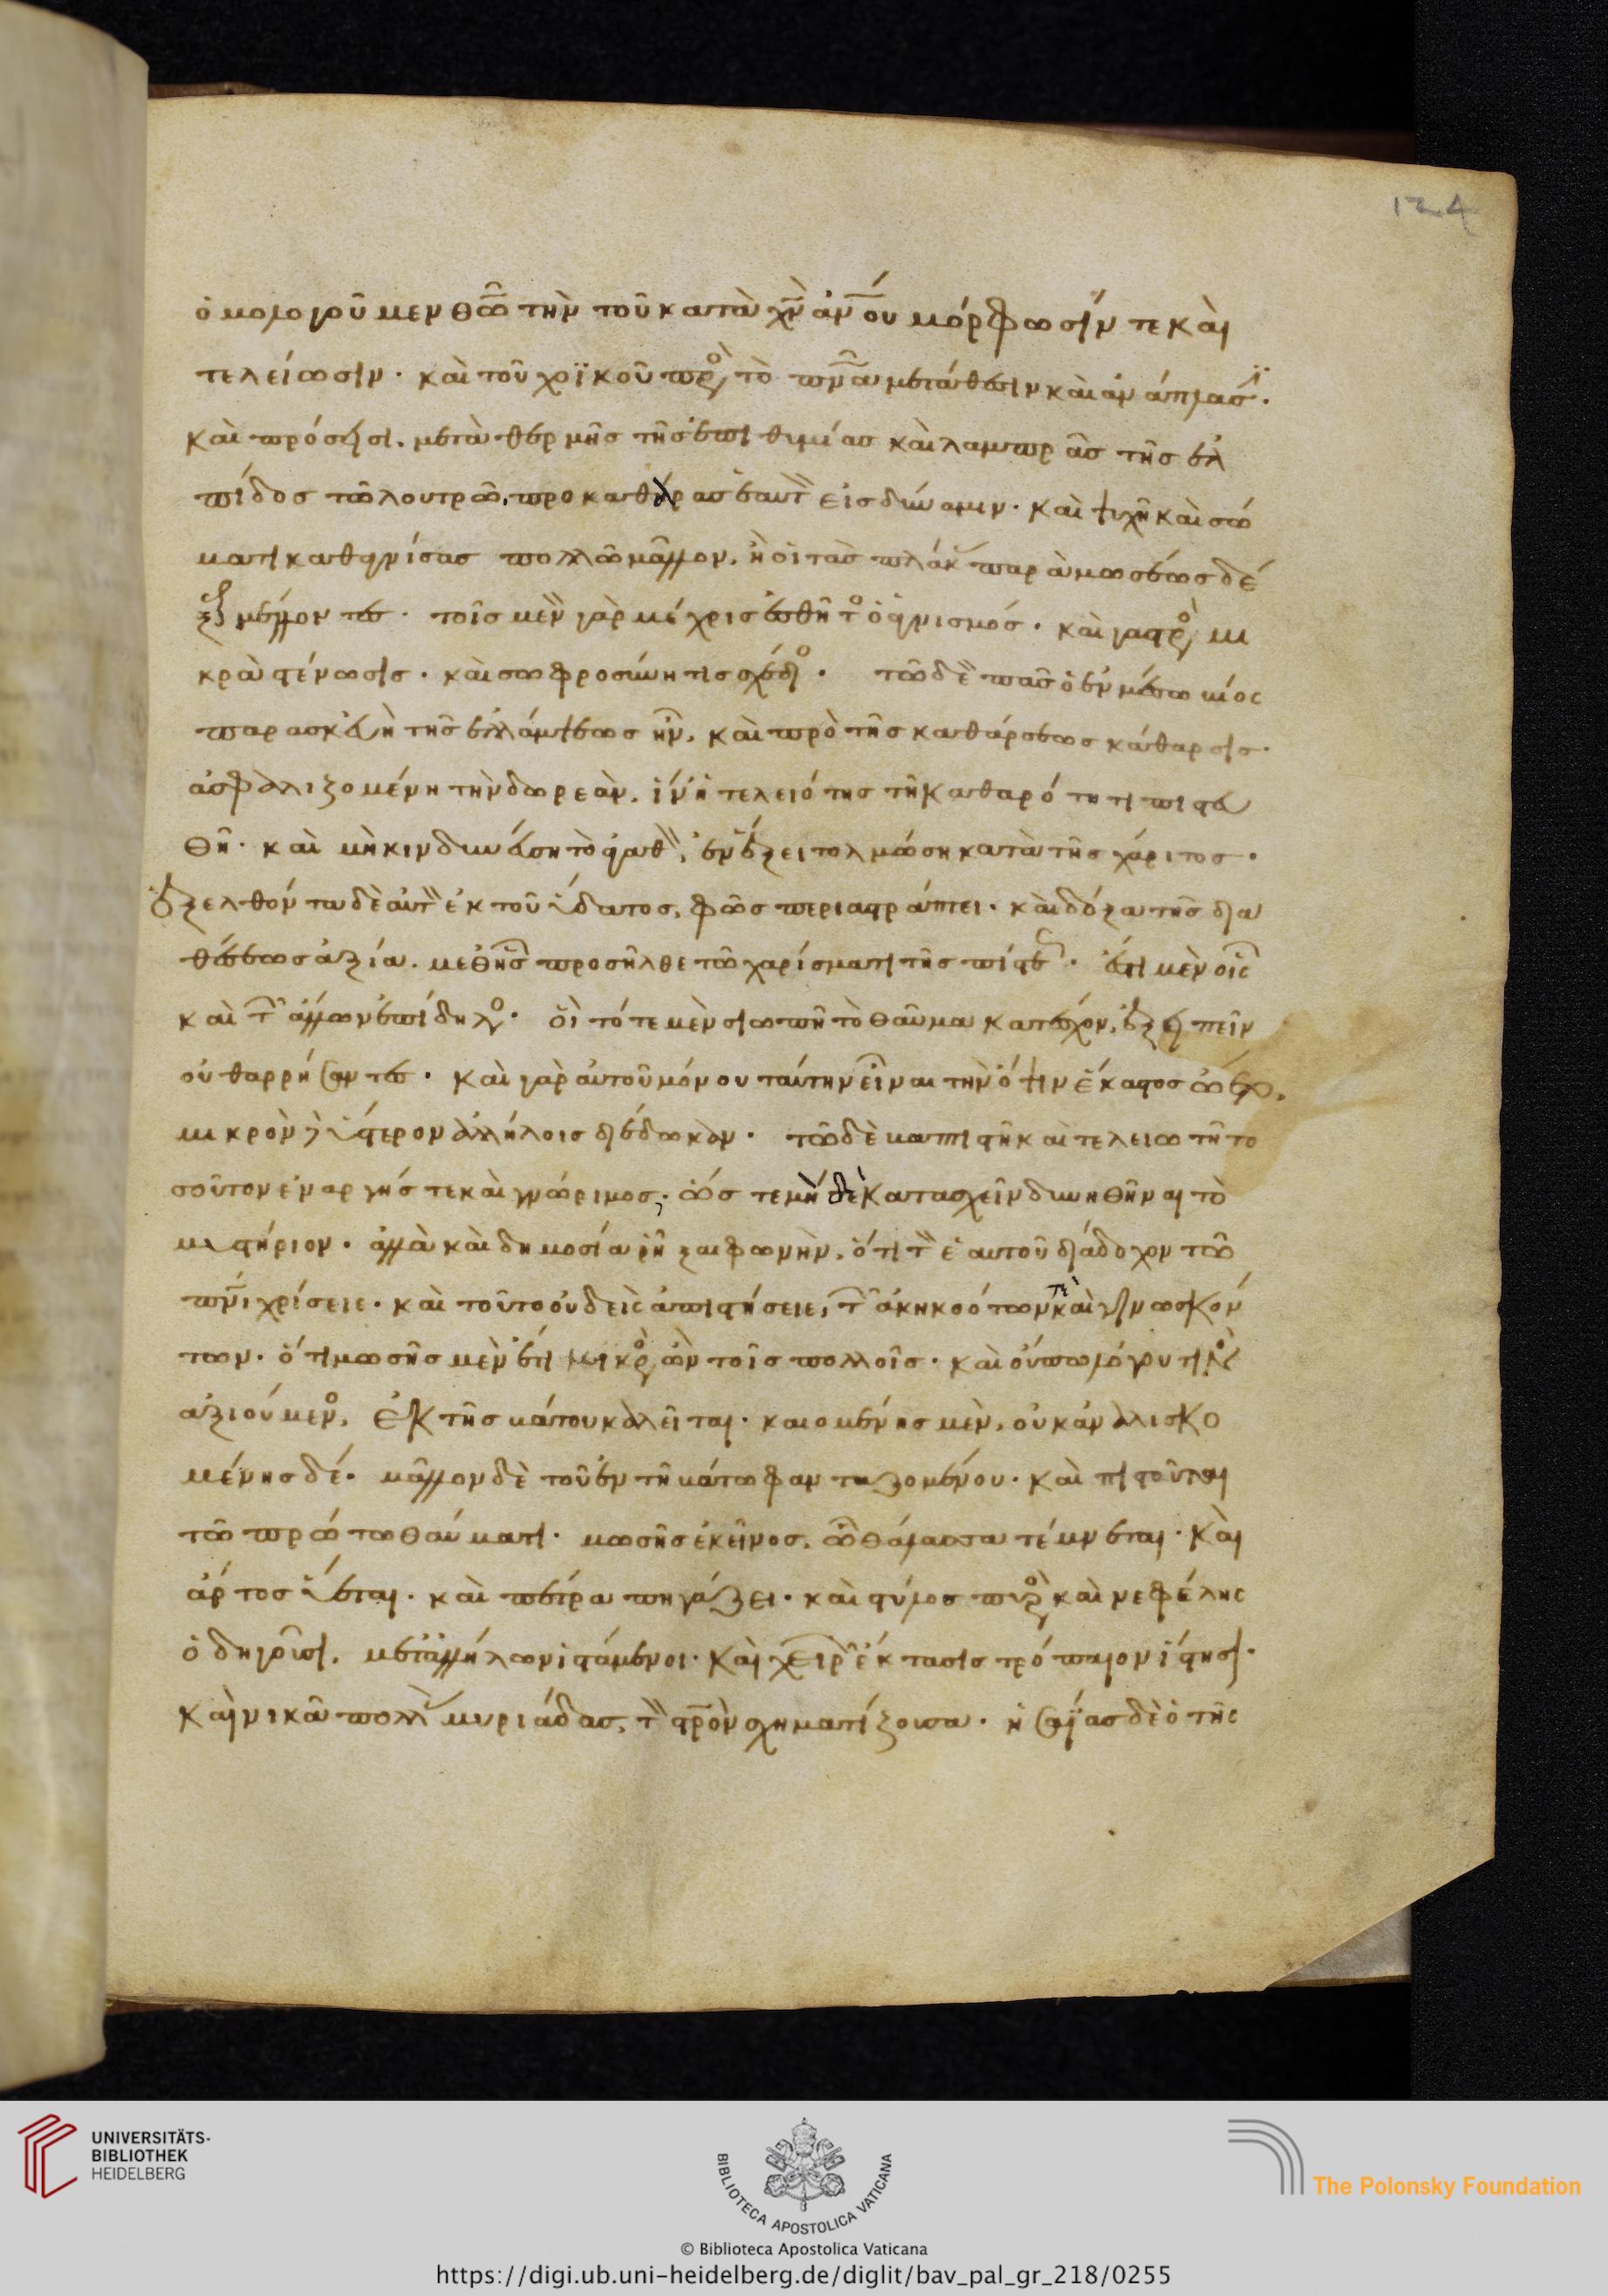 124
ὁμολογοῦμεν θω̅ τὴν τοῦ κατὰ χν̅ ἀνου̅ μόρφωσίν τε καὶ
τελείωσιν· καὶ τοῦ χοϊκοῦ πρὸς τὸ πνα̅ μετάθεσιν καὶ ἀνάπλασιν·
καὶ πρόσεισι, μετὰ θερμῆς τῆς ἐπιθυμίας καὶ λαμπρᾶς τῆς ἐλ
πίδος τῶ λουτρῶ, προκαθάρας ἑαυτὸν εἰς δύναμιν· καὶ ψυχῆ καὶ σώ
ματι καθαγνίσας πολλῶ μᾶλλον, ἢ οἱ τὰς πλάκας παρὰ μωσέως δέ
ξεσθαι μέλλοντες· τοῖς μὲν γὰρ μέχρις ἐσθῆτος ὁ ἁγνισμός· καὶ γαστρὸς μι
κρὰ στένωσις· καὶ σωφροσύνη τις σχέδιος· τῶ δὲ πᾶς ὁ ἐν μέσω βίος
παρασκευὴ τῆς ἐλλάμψεως ἦν, καὶ πρὸ τῆς καθάρσεως κάθαρσις·
ἀσφαλιζομένη τὴν δωρεὰν, ἵν' ἡ τελειότης τῆ καθαρότητι πιστευ
θῆ· καὶ μὴ κινδυνεύση τὸ ἀγαθὸν, ἐν ἕξει τολμώση κατὰ τῆς χάριτος·
ἐξελθόντα δὲ αὐτὸν ἐκ τοῦ ὕδατος, φῶς περιαστράπτει· καὶ δόξα τῆς δια
θέσεως ἀξία. μεθ' ἧς προσῆλθε τῶ χαρίσματι τῆς πίστεως· ἔτι μὲν οἷς
καὶ τῶν ἄλλων ἐπίδηλος· οἳ τότε μὲν σιωπῆ τὸ θαῦμα κατέσχον, ἐξειπεῖν
οὐ θαρρήσαντες· καὶ γὰρ αὐτοῦ μόνου ταύτην εἶναι τὴν ὄψιν ἕκαστος ὤετο,
μικρὸν δὲ ὕστερον ἀλλήλοις διέδωκαν· τῶ δὲ βαπτιστῆ καὶ τελειωτῆ το
σοῦτον ἐναργής τε καὶ γνώριμος, ὥς τε μὴ δὲ κατασχεῖν δυνηθῆναι τὸ
μυστήριον· ἀλλὰ καὶ δημοσία ῥῆξαι φωνὴν, ὅτι τὸν ἑαυτοῦ διάδοχον τῶ
πνι̅ χρίσειε· καὶ τοῦτο οὐδεὶς ἀπιστήσειε, τῶν ἀκηκοότων τὲ καὶ γινωσκόν
των· ὅτι μωσῆς μὲν ἔτι μικρὸς ὢν τοῖς πολλοῖς· καὶ οὔπω λόγου τινὸς
ἀξιούμενος, ἐκ τῆς βάτου καλεῖται· καιομένης μὲν, οὐκ ἀναλισκο
μένης δέ· μᾶλλον δὲ τοῦ ἐν τῆ βάτω φανταζομένου· καὶ πιστοῦται
τῶ πρώτω θαύματι· μωσῆς ἐκεῖνος, ὧ θάλασσα τέμνεται· καὶ
ἄρτος ὕεται· καὶ πέτρα πηγάζει· καὶ στύλος πυρὸς καὶ νεφέλης
ὁδηγοῦσι, μετ' ἀλλήλων ἱστάμενοι· καὶ χειρῶν ἔκτασις τρόπαιον ἵστησι·
καὶ νικᾶ πολλὰς μυριάδας, τὸν στρον̅ σχηματίζουσα· ἡσαΐας δὲ ὁ τῆς
UNIVERSITÄTS-
BIBLIOTHEK
HEIDELBERG
BIBLIOTECA APOSTOLICA VATICANA
The Polonsky Foundation
© Biblioteca Apostolica Vaticana
https://digi.ub.uni-heidelberg.de/diglit/bav_pal_gr_218/0255